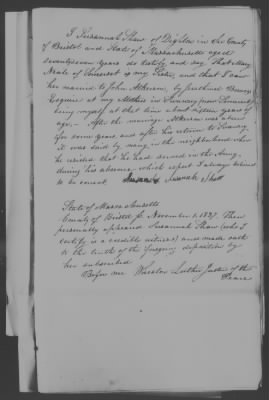 I Susannah Shaw of Dighton in the County
of Bristol and State of Massachusetts aged
seventyseven years do testify and say That Mary
Neale of Somerset is my Sister, and that I saw
her married to John Atherson, by
Esquire at my Mothers in Swansey (now Somerset)
being myself at that time about fifteen years of
age. - After the marriage Atherson was absent
for some years and after his return to Swansey
it was said by many in the neighborhood where
he resided that he had served in the Army
during his absence which report I always believed
to be correct Susannah Shaw
State of Massachusetts
County of Bristol ss November 1. 1837. Then
personally appeared Susannah Shaw (who I
certify is a credible witness) and made oath
to the truth of the foregoing deposition by
her subscribed
Before me Wheaton Luther Justice of the
Peace